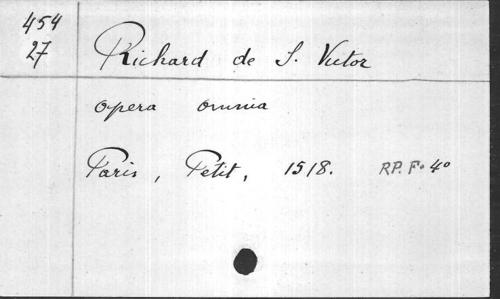 454
27
Richard de S. Victor
opera omnia
Paris, Petit, 1518. RP. F. 4°